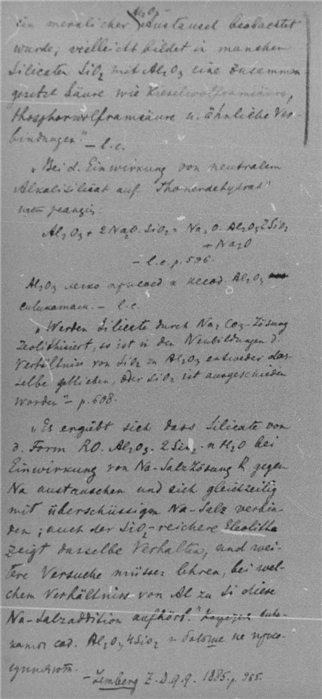 Al₂O₃
ein merklicher Austausch beobachtet
wurde; vielleicht bildet in manchen
Silicaten SiO₂ mit Al₂O₃ eine zusammen
gesetzte Säure wie Kieselwolframsäure,
Phosphorwolframsäure u. ähnliche Ver-
bindungen." — l. c.
"Bei d. Einwirkung von neutralem
Alkalisilicat auf Thonerdehydrat"
Al₂O₃ + 2Na₂O SiO₂ = Na₂O. Al₂O₃ 2SiO₂
+ Na₂O
— l. c. p. 536.
Al₂O₃ легко Al₂O₃
силикатам. — l. c.
"Werden Silicate durch Na₂CO₃-Lösung
zeolithisiert, so ist in den Neubildungen d.
Verhältniss von SiO₂ zu Al₂O₃ entweder das-
selbe geblieben, oder SiO₂ ist ausgeschieden
worden" — p. 608.
"Es ergiebt sich dass Silicate von
d. Form RO. Al₂O₃. 2SiO₂. nH₂O bei
Einwirkung von Na-Salzlösung R gegen
Na austauschen und sich gleichzeitig
mit überschüssigen Na-Salz verbin-
den; auch der SiO₂-reichere Eleolith
zeigt dasselbe Verhalten, und wei-
tere Versuche müssen lehren, bei wel-
chem Verhältniss von Al zu Si diese
Na-Salzaddition aufhört."
Al₂O₃ 4SiO₂ и больше не
— Lemberg Z. D. g. G. 1885. p. 965.